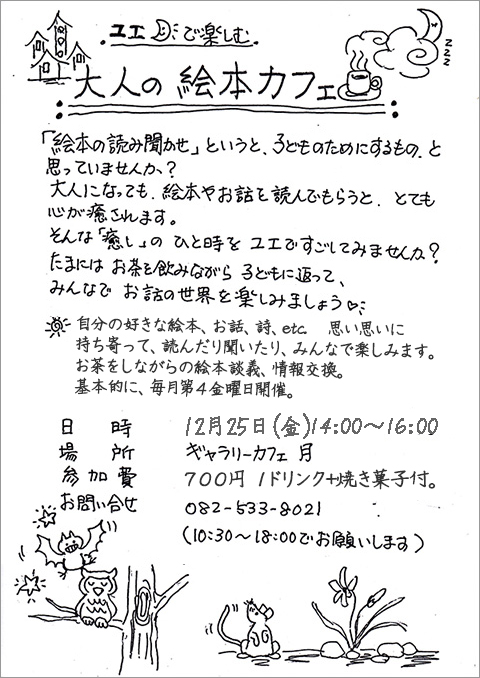 ユエ で楽しむ
大人の 絵本カフェ
zzz
「絵本の読み聞かせ」というと、子どものためにするもの、と
思っていませんか、?
大人になっても、絵本やお話を読んでもらうと、とても
心が癒されます。
そんな「癒し」のひと時をユエですごしてみませんか?
たまにはお茶を飲みながら子どもに返って、
みんなでお話の世界を楽しみましょう♡
自分の好きな絵本、お話、詩、etc 思い思いに
持ち寄って、読んだり聞いたり、みんなで楽しみます。
お茶をしながらの絵本談義、情報交換。
基本的に、毎月第4金曜日開催。
日 時 12月25日(金)14:00〜16:00
場 所 ギャラリーカフェ 月
参加費 700円 1ドリンク+焼き菓子付。
お問い合せ 082-533-8021
(10:30〜18:00でお願いします)